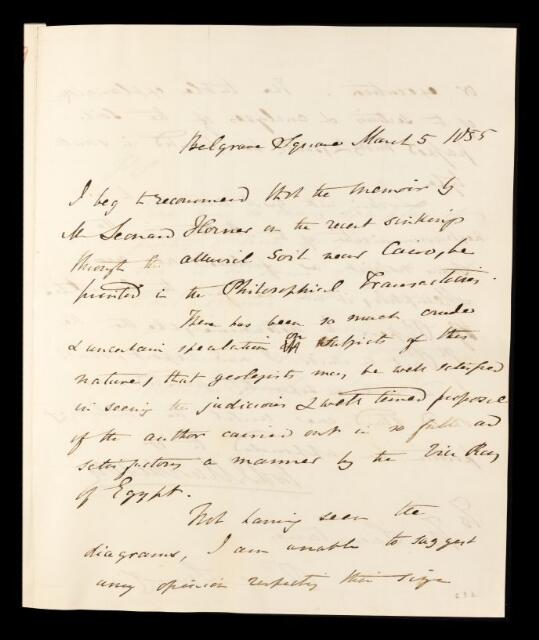 Belgrave Square March 5 1855
I beg to recommend that the memoir by
Mr Leonard Horner on the recent sinkings
through the alluvial soil near Cairo, be
printed in the Philosophical Transactions.
There has been so much crude
& uncertain speculation on subjects of this
nature, that geologists may be well satisfied
in seeing the judicious & well timed proposal
of the author carried out in so full & ad
satisfactory a manner by the Vice Roy
of Egypt.
Not having seen the
diagrams, I am unable to suggest
any opinion respecting their size
232